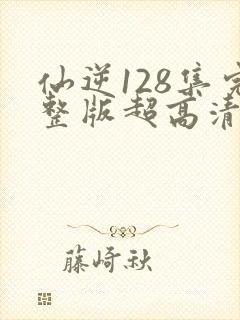 仙逆128集完
整版超高清
藤崎秋